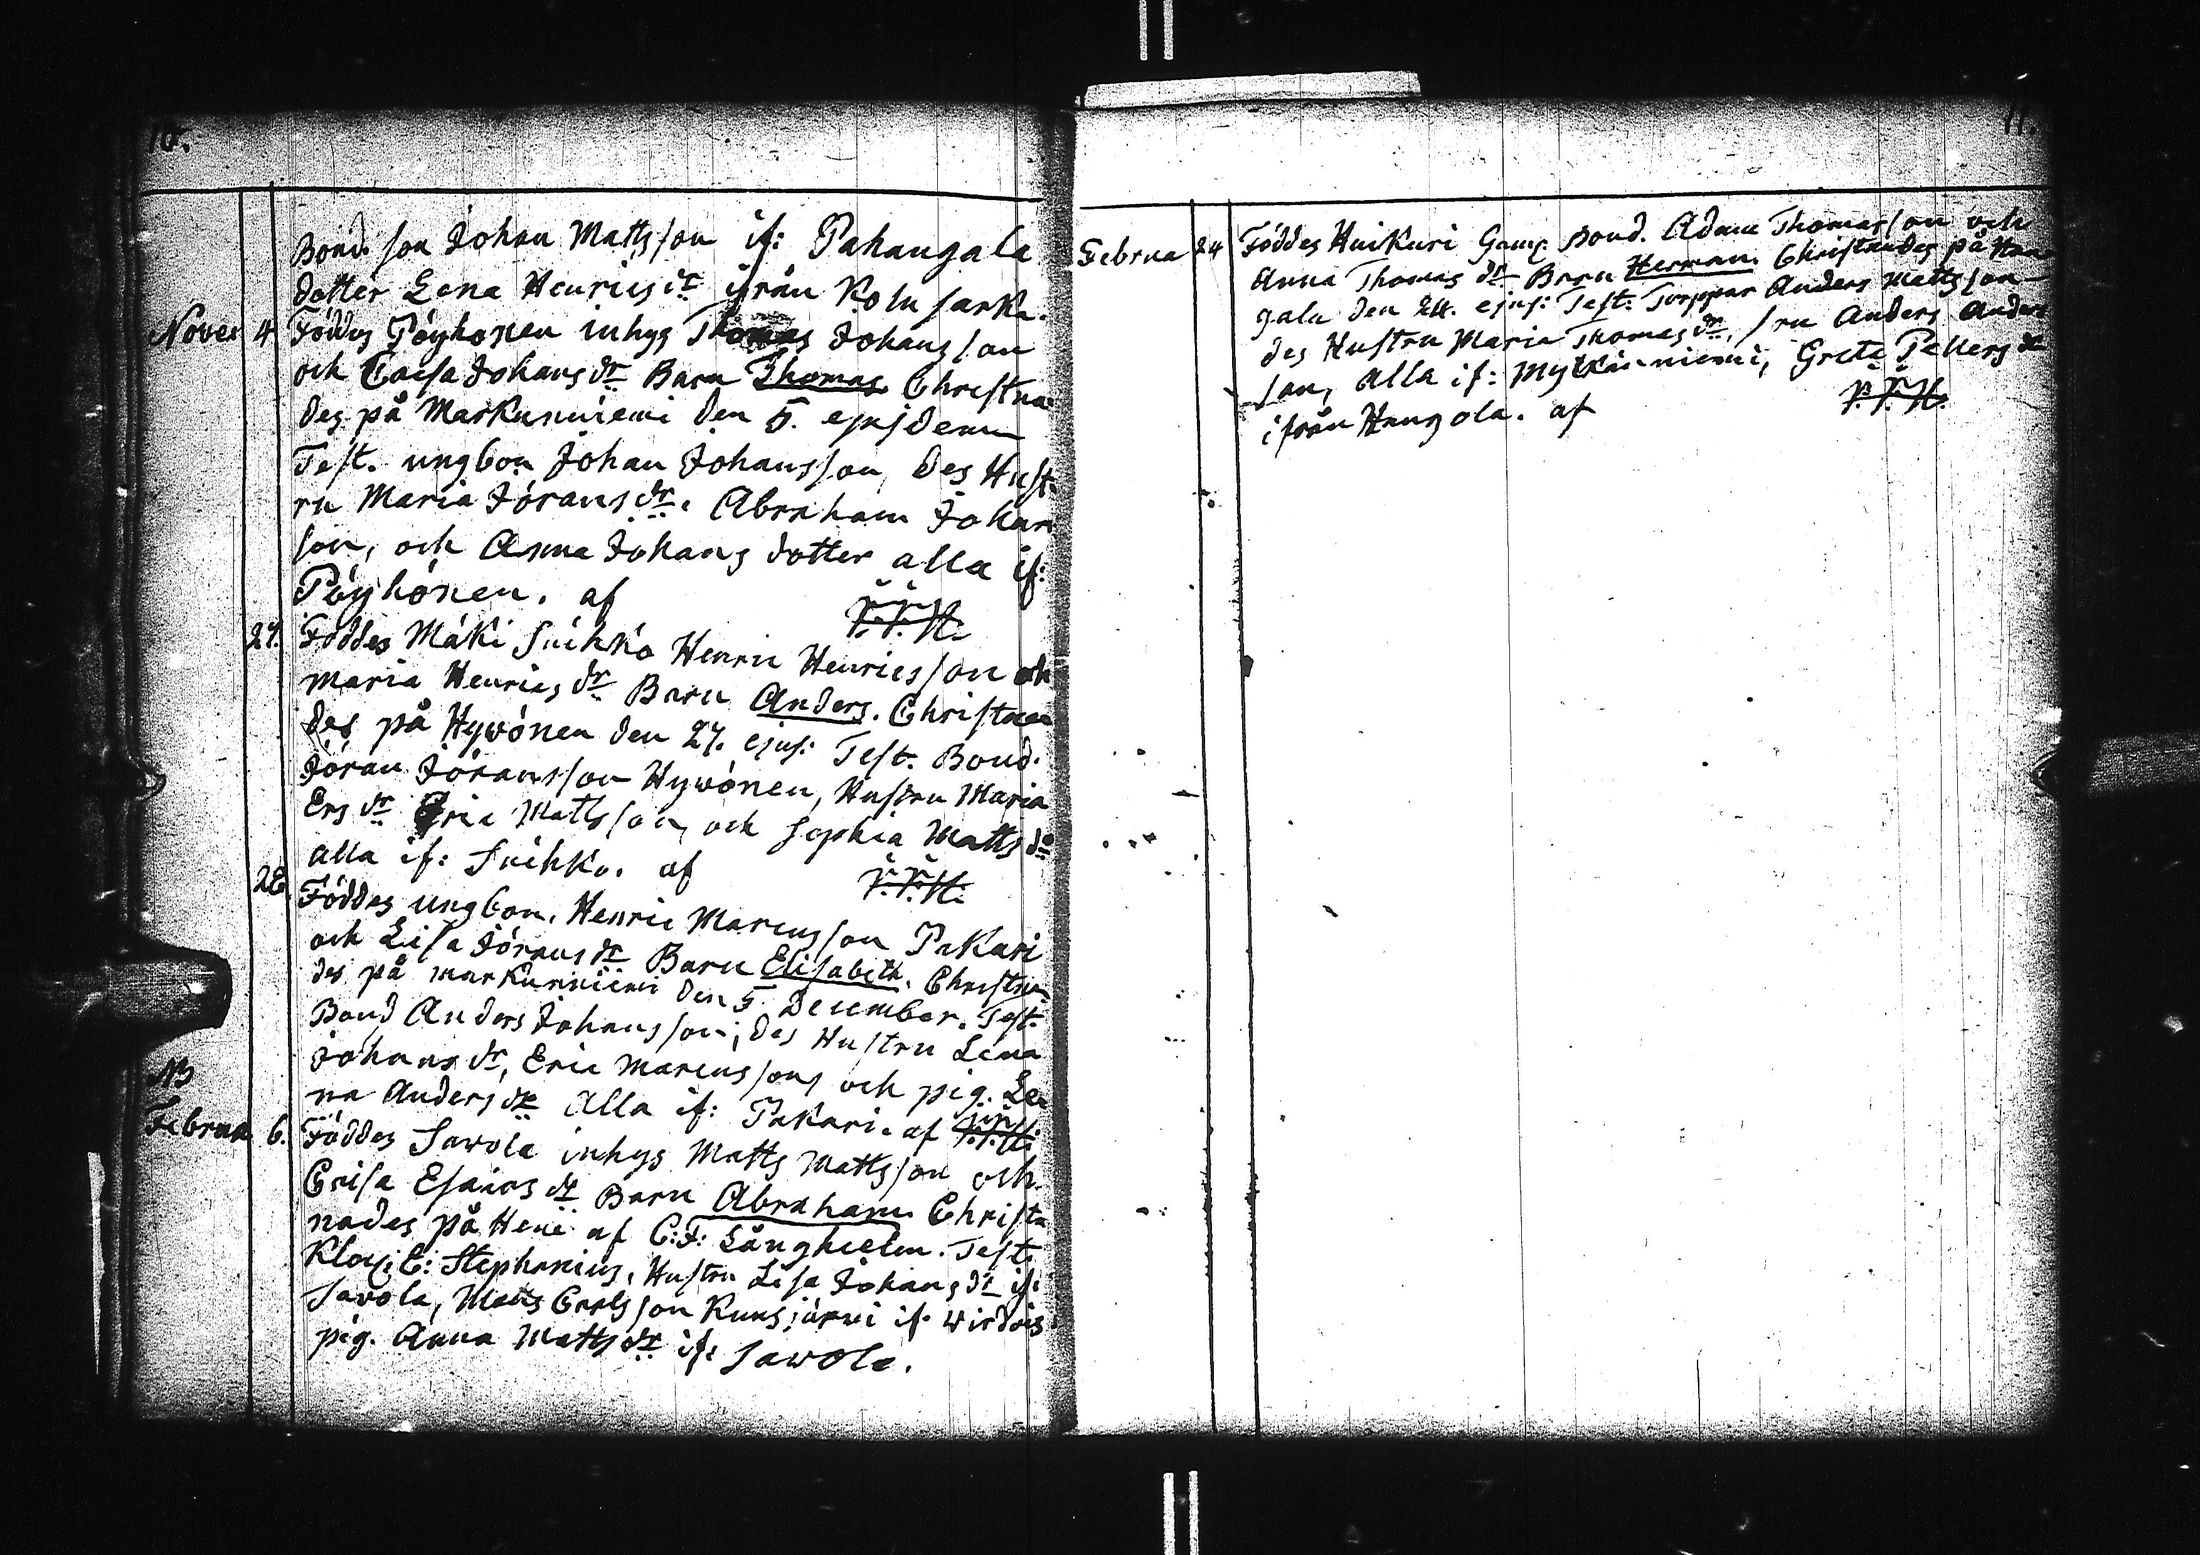 10.
Bond. son Johan Mattsson if: Pahangala
dotter Lena Henrics dr ifrån Kolu sarka.
Novem 4 Föddes Pöyhönen inhys Thomas Johansson
och Caisa Johans dr Barn Thomas Christna
des på Markunniemi den 5. ejusdem
Test. ungbon Johan Johansson, des Hust
ru Maria Jörans dr. Abraham Johan
son, och Anna Johans dotter alla if:
Pöyhönen. af P.P.H.
27. Föddes Mäki Suihko Henric Henricsson och
Maria Henrics dr Barn Anders. Christna
des på Hywönen den 27. ejus: Test. Bond.
Jöran Jöransson Hywönen, Hustru Maria
Ers dr Eric Mattsson och Sophia Matts dr
alla if: Suihko. af P.P.H.
28 Föddes ungbon. Henric Marcusson Pakari
och Lisa Jörans dr Barn Elisabeth. Christna
des på Markunniemi den 5 December. Test.
Bond Anders Johansson; des Hustru Lena
Johans dr, Eric Marcusson och pig. Le
na Anders dr Alla if: Pakari. af P.P.H.
NB
Februa 6. Föddes Sawola inhys Matts Mattsson och
Caisa Esaias dr Barn Abraham Christ
nades på Heni af C:F: Långhielm. Test.
Kloc: E: Stephanius, Hustru Lisa Johans dr if:
Sawola, Matts Carlsson Kuusjärwi if. Wirdois
pig. Anna Matts dr if: Sawola.
11.
Februa 24 Föddes Huikuri Gamg. Bond. Adam Thomasson och
Anna Thomas dr Barn Herman. Christnades på Han
gala den 24. ejus: Test. Torppar Anders Mattsson
des Hustru Maria Thomas dr, Anders Anders
son, Alla if: Mylkäiniemi, Greta Pellers dr
ifrån Hangola. af P.P.H.